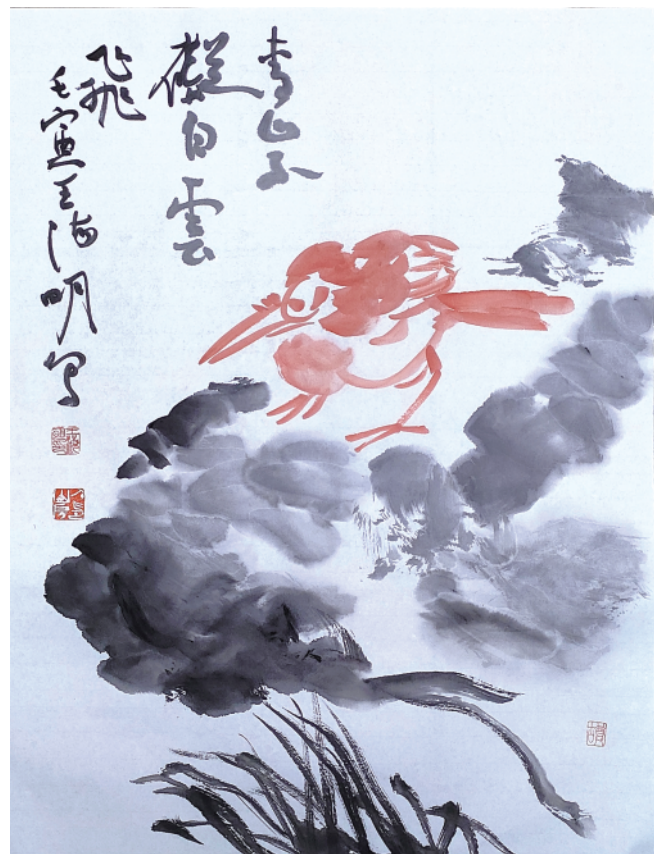 青山不
礙白雲
飞飛
壬寅王海明写